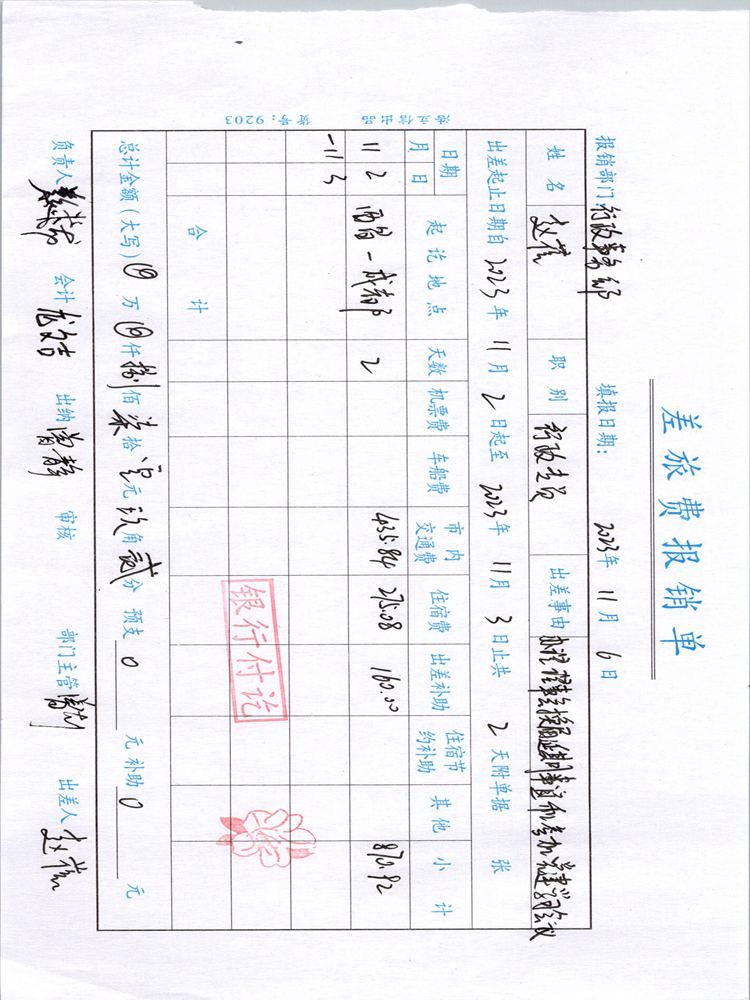 差旅费报销单
报销部门 行政事务部 填报日期： 2023年 11月 6日
姓名 赵 职别 行政专员 出差事由 办理理事会换届延期事宜和参加党建学习会议
出差起止日期自 2023年 11月 2日起至 2023年 11月 3日止共 2天附单据 张
日期 起讫地点 天数 机票费 车船费 市内交通费 住宿费 出差补助 住宿节约补助 其他 小计
月 日
11 2 西昌-成都 2 435.84 275.08 160.00 870.92
-11 3
银行付讫
合计
总计金额（大写）⊕万⊕仟捌佰柒拾零元玖角贰分 预支 0 元 补助 0 元
负责人 会计 出纳 曾静 审核 部门主管 出差人 赵
浩立信出品 货号：9203